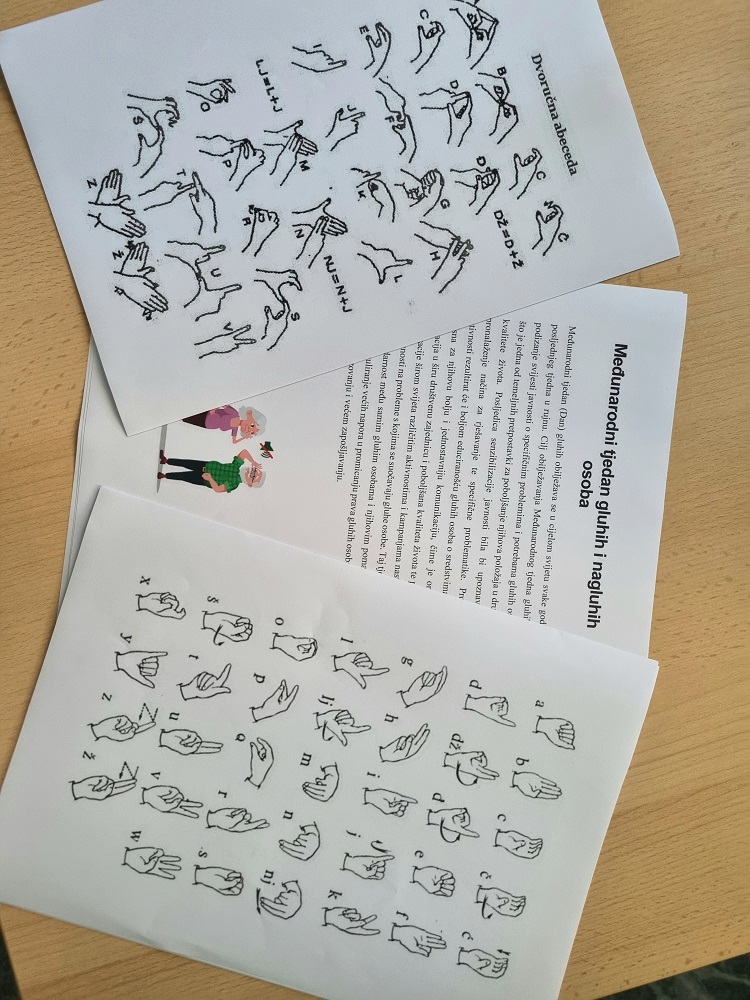 Dvoručna abeceda
B C Č
Ć D Đ DŽ=D+Ž
E F G H
J K L
LJ=L+J M N NJ=N+J
O P R S
Š T U V
Z Ž
Međunarodni tjedan gluhih i nagluhih
osoba
Međunarodni tjedan (Dan) gluhih obilježava se u cijelom svijetu svake god
posljednjeg tjedna u rujnu. Cilj obilježavanja Međunarodnog tjedna gluhi
podizanje svijesti javnosti o specifičnim problemima i potrebama gluhih o
što je jedna od temeljnih pretpostavki za poboljšanje njihova položaja u dru
kvalitete života. Posljedica senzibilizacije javnosti bila bi upoznav
pronalaženje načina za rješavanje te specifične problematike. Pro
tivnosti rezultirat će i boljom educiranošću gluhih osoba o sredstvim
sna za njihovu bolju i jednostavniju komunikaciju, čime je
acija u širu društvenu zajednicu i poboljšana kvaliteta života te
acije širom svijeta različitim aktivnostima i kampanjama nas
nosti na probleme s kojima se suočavaju gluhe osobe. Taj
darnost među samim gluhim osobama i njihovim
uliranje većih napora u promicanju prava gluhih osob
ovanju i većem zapošljavanju.
a b c č ć
d dž đ e f
g h i j k
l lj m n nj
o p q r s
š t u v w
x y z ž